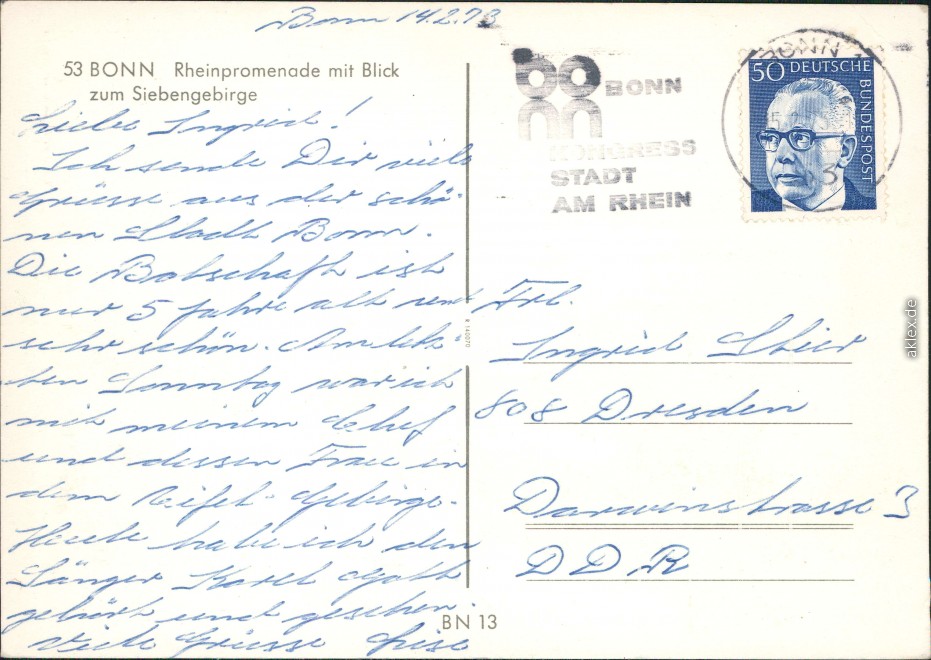 Bonn 14.2.73
53 BONN Rheinpromenade mit Blick
zum Siebengebirge
Liebe Ingrid!
Ich sende Dir viele
Grüsse aus der schö-
nen Stadt Bonn.
Die Botschaft ist
nur 5 Jahre alt und
sehr schön. Am letz-
ten Sonntag war ich
mit meinem Chef
und dessen Frau in
dem Eifel-Gebirge.
Heute habe ich den
Sänger Karel Gott
gehört und gesehen.
Viele Grüsse Lise
BN 13
K 140070
BONN
KONGRESS
STADT
AM RHEIN
BONN 1
50 DEUTSCHE
BUNDESPOST
Frl.
Ingrid Stier
808 Dresden
Darwinstrasse 3
DDR
aklex.de